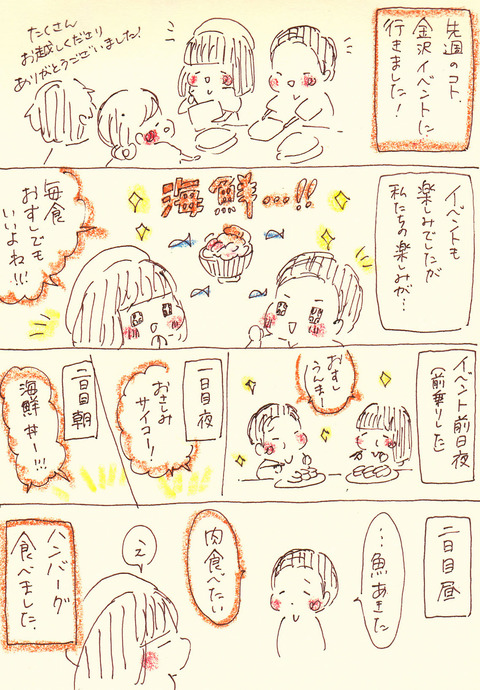 先週のコト、
金沢イベントに
行きました！
たくさん
お越しくださり
ありがとうございました！
イベントも
楽しみでしたが
私たちの楽しみが…
海鮮…!!
毎食
おすしでも
いいよね!!!
イベント前日夜
(前乗りした)
おすし
うんまー
一日目夜
おさしみ
サイコー！
二日目朝
海鮮丼ー!!!
二日目昼
…魚あきた
肉食べたい
え
ハンバーグ
食べました。